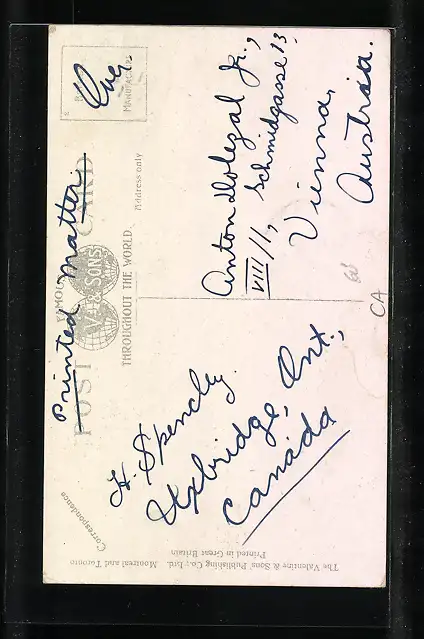 POST CARD
FAMOUS
V. & SONS
THROUGHOUT THE WORLD
Printed Matter
Correspondence
Address only
MANUFACT
H. Spencley.
Uxbridge, Ont.,
Canada
Anton Dolezal Jr.,
VIII/1, Schmidgasse 13,
Vienna,
Austria.
CA
The Valentine & Sons Publishing Co., Ltd. Montreal and Toronto
Printed in Great Britain